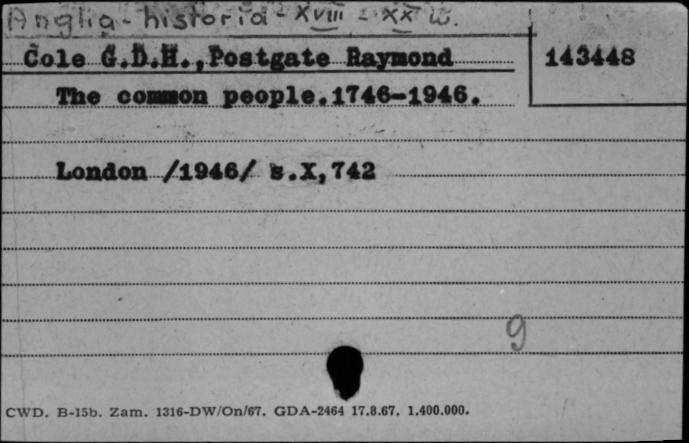 Anglia - historia - XVIII - XX w.
Cole G.D.H., Postgate Raymond
143448
The common people. 1746-1946.
London /1946/ s.X,742
9
CWD. B-15b. Zam. 1316-DW/On/67. GDA-2464 17.8.67. 1.400.000.